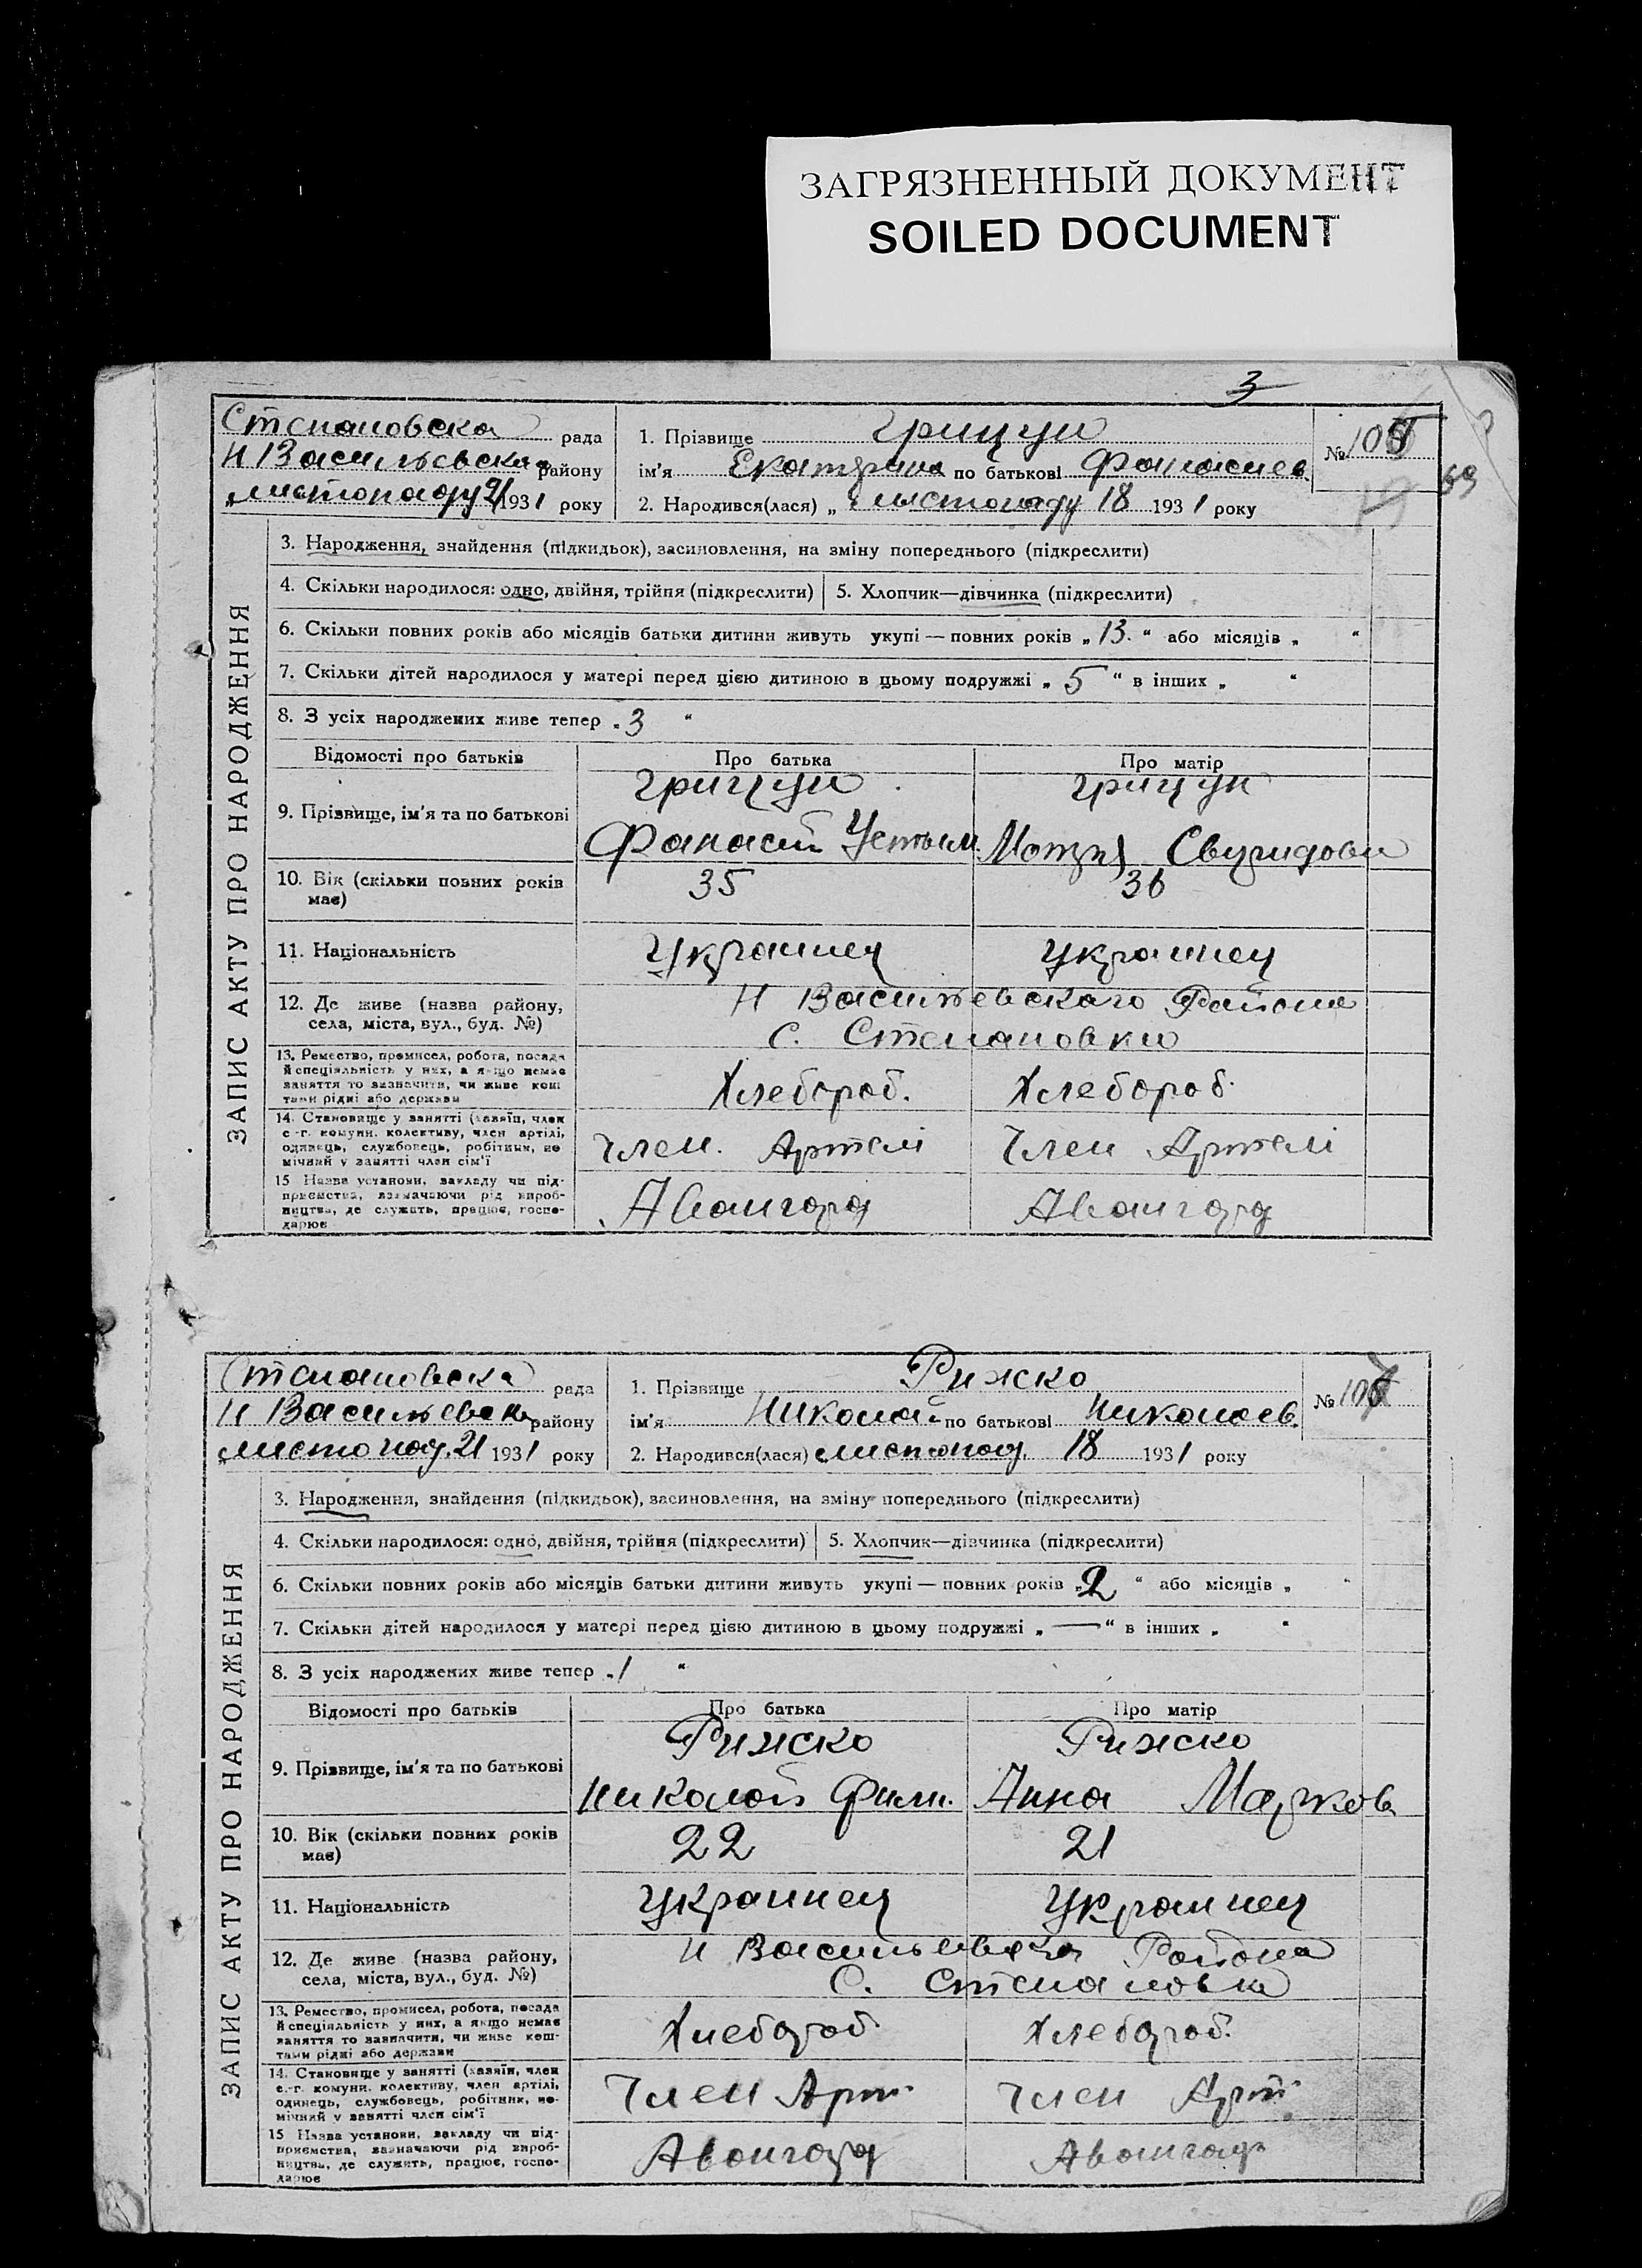 ЗАГРЯЗНЕННЫЙ ДОКУМЕНТ
SOILED DOCUMENT
3
Степановска рада
Н Васильевска району
листопаду 21 1931 року
1. Прізвище Грицун
ім'я Екатерина по батькові Фанасиев.
2. Народився(лася) „ листопаду 18 1931 року
№ 10
69
ЗАПИС АКТУ ПРО НАРОДЖЕННЯ
3. Народження, знайдення (підкидьок), засиновлення, на зміну попереднього (підкреслити)
4. Скільки народилося: одно, двійня, трійня (підкреслити) 5. Хлопчик—дівчинка (підкреслити)
6. Скільки повних років або місяців батьки дитини живуть укупі — повних років „ 13. “ або місяців „ “
7. Скільки дітей народилося у матері перед цією дитиною в цьому подружжі „ 5 “ в інших „ “
8. З усіх народжених живе тепер „ 3 “
Відомості про батьків Про батька Про матір
9. Прізвище, ім'я та по батькові
Грицун Грицун
Фанасий Устим. Мотря
10. Вік (скільки повних років має) 35 36
11. Національність Украинец Украинец
12. Де живе (назва району, села, міста, вул., буд. №)
Н Васильевского Района
С. Степановки
13. Ремество, промисел, робота, посада
й спеціяльність у них, а якщо немає
заняття то зазначити, чи живе кош
тами рідні або держави
Хлебороб. Хлебороб.
14. Становище у занятті (хазяїн, член
с.-г. комуни, колективу, член артілі,
одинець, службовець, робітник, по
мічний у занятті член сім'ї
Член. Артелі Член Артелі
15 Назва установи, закладу чи під-
приємства, зазначаючи рід вироб-
ництва, де служить, працює, госпо-
дарює
Авангард Авангард
Степановска рада
Н Васильевска району
листопад. 21 1931 року
1. Прізвище Рижско
ім'я Николай по батькові Николаев.
2. Народився(лася) листопад. 18 1931 року
№ 10
ЗАПИС АКТУ ПРО НАРОДЖЕННЯ
3. Народження, знайдення (підкидьок), засиновлення, на зміну попереднього (підкреслити)
4. Скільки народилося: одно, двійня, трійня (підкреслити) 5. Хлопчик—дівчинка (підкреслити)
6. Скільки повних років або місяців батьки дитини живуть укупі — повних років „ 2 “ або місяців „ “
7. Скільки дітей народилося у матері перед цією дитиною в цьому подружжі „ — “ в інших „ “
8. З усіх народжених живе тепер „ 1 “
Відомості про батьків Про батька Про матір
9. Прізвище, ім'я та по батькові
Рижско Рижско
Николай Фили. Анна Марков
10. Вік (скільки повних років має) 22 21
11. Національність Украинец Украинец
12. Де живе (назва району, села, міста, вул., буд. №)
Н Васильевска Района
С. Степановка
13. Ремество, промисел, робота, посада
й спеціяльність у них, а якщо немає
заняття то зазначити, чи живе кош-
тами рідні або держави
Хлебороб. Хлебороб.
14. Становище у занятті (хазяїн, член
с.-г. комуни, колективу, член артілі,
одинець, службовець, робітник, по-
мічний у занятті член сім'ї
Член Арт. Член Арт.
15 Назва установи, закладу чи під-
приємства, зазначаючи рід вироб-
ництва, де служить, працює, госпо-
дарює
Авангард Авангард